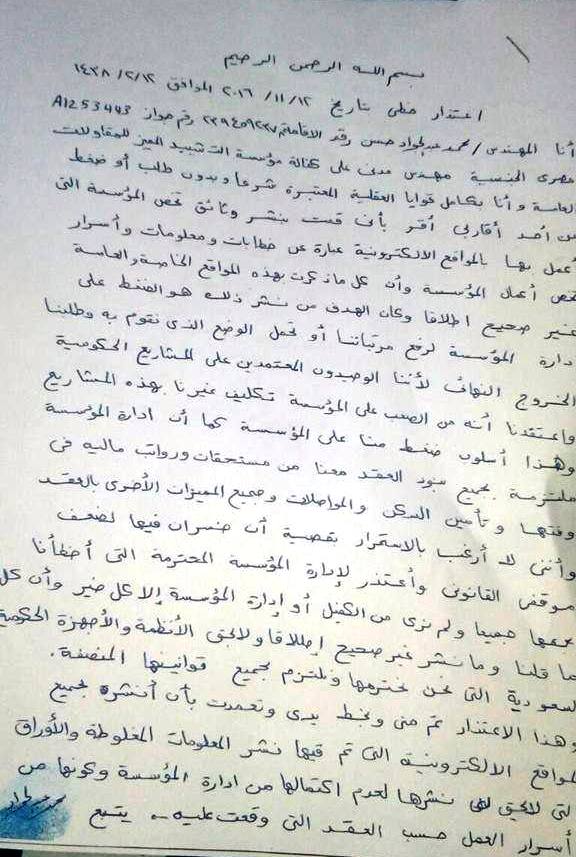 بسم الله الرحمن الرحيم
اعتذار خطى بتاريخ ١٢/ ١١/ ٢٠١٦ الموافق ١٢/ ٢/ ١٤٣٨
أنا المهندس / محمد عبدالجواد حسن رقم الاقامة ٢٣٩٤٥٩٢٣٧ رقم جواز A1253443
مصرى الجنسية مهندس مدنى على كفالة مؤسسة التشييد المميز للمقاولات
العامة وأنا بكامل قوايا العقلية المعتبرة شرعا وبدون طلب أو ضغط
من أحد أقاربى أقر بأنى قمت بنشر وثائق تخص المؤسسة التى
أعمل بها بالمواقع الالكترونية عبارة عن خطابات ومعلومات وأسرار
تخص أعمال المؤسسة وأن كل ماذكرت بهذه المواقع الخاصة والعامة
غير صحيح اطلاقا وكان الهدف من نشر ذلك هو الضغط على
دارة المؤسسة لرفع مرتباتنا أو تحمل الوضع الذى نقوم به وطلبنا
الخروج النهائى لأننا الوحيدون المعتمدين على المشاريع الحكومية
واعتقدنا أنه من الصعب على المؤسسة تكليف غيرنا بهذه المشاريع
وهذا أسلوب ضغط منا على المؤسسة كما أن ادارة المؤسسة
ملتزمة بجميع بنود العقد معنا من مستحقات ورواتب ماليه فى
وقتها وتأمين السكن والمواصلات وجميع المميزات الأخرى بالعقد
وأننى لا أرغب بالاستمرار بقضية أن خسران فيها لضعف
موقفى القانونى وأعتذر لإدارة المؤسسة المحترمة التى أخطأنا
بحقها جميعا ولم نرى من الكفيل أو إدارة المؤسسة إلا كل خير وأن كل
ما قلنا وما نشر غير صحيح إطلاقا ولا بحق الأنظمة والأجهزة الحكومية
لسعودية التى نحن نحترمها ونلتزم بجميع قوانينها المنصفة.
وهذا الاعتذار تم منى وبخط يدى وتعهدت بأن أنشره بجميع
لمواقع الالكترونية التى تم فيها نشر المعلومات المغلوطة والأوراق
لتى لا يحق لى نشرها لعدم اكتمالها من ادارة المؤسسة وكونها من
أسرار العمل حسب العقد التى وقعت عليه - يتبع